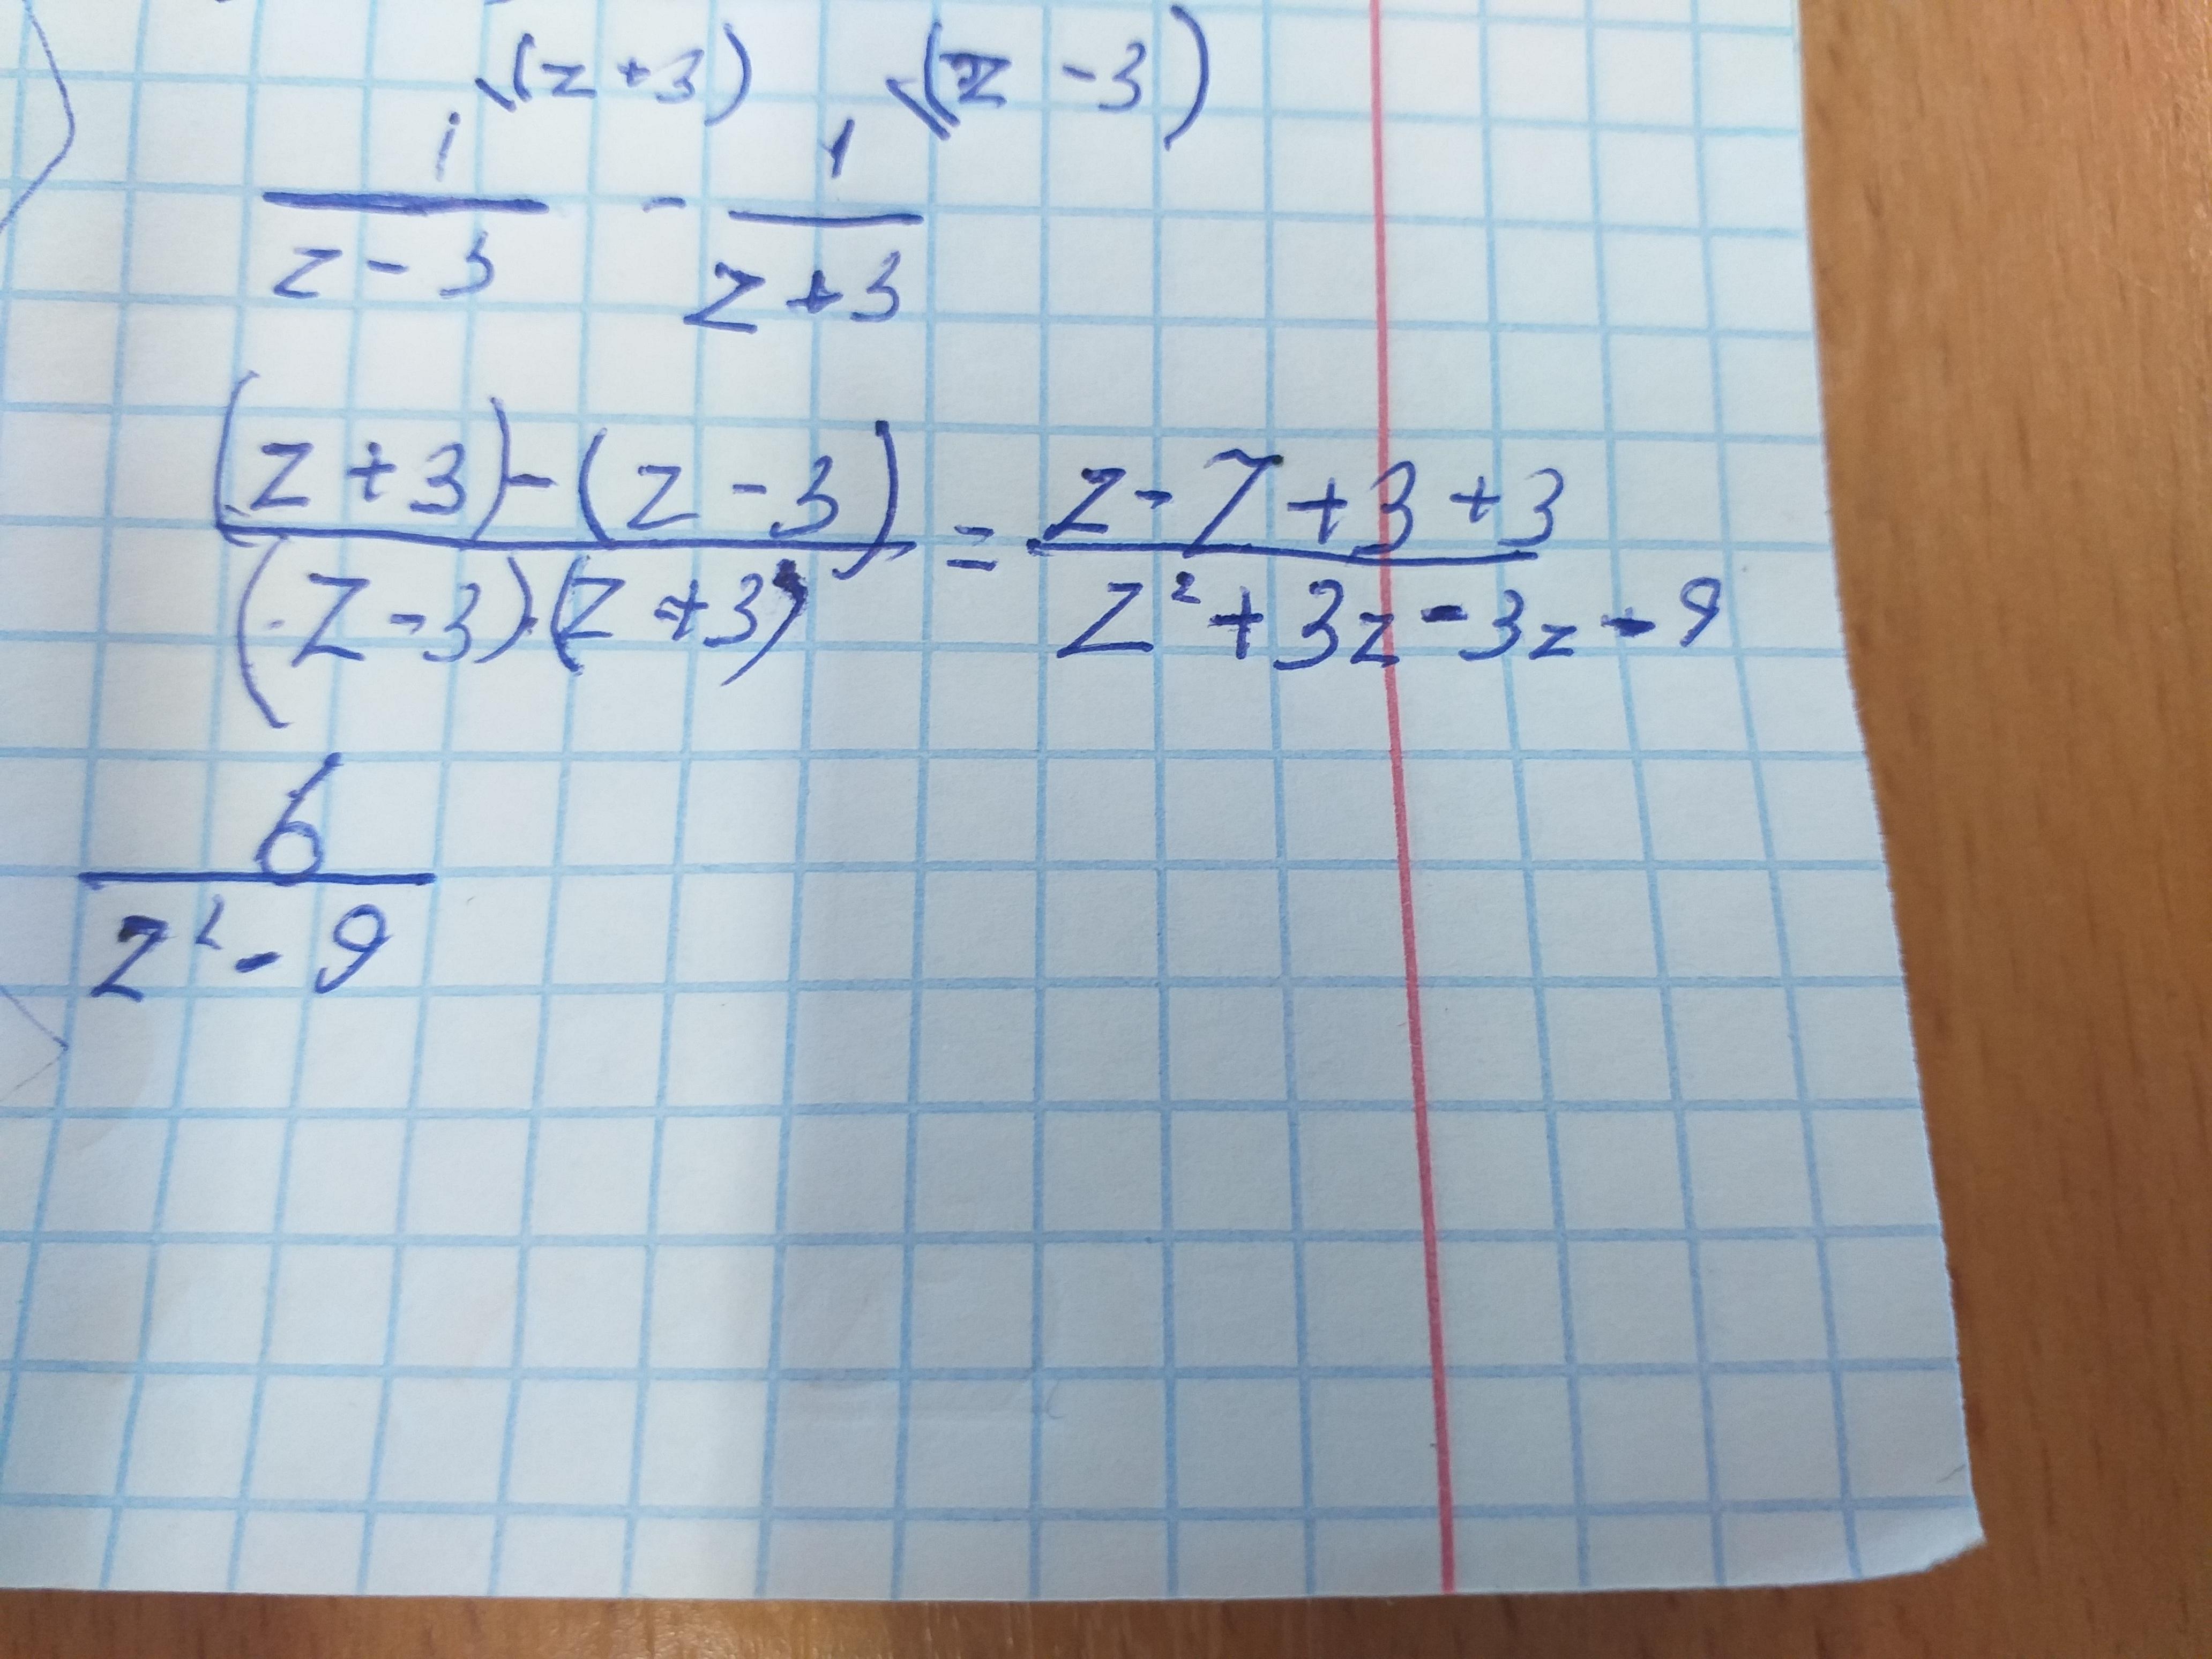 \(z+3) \(z-3)
1/(z-3) - 1/(z+3)
((z+3)-(z-3))/((z-3)·(z+3)) = (z-z+3+3)/(z²+3z-3z-9)
6/(z²-9)